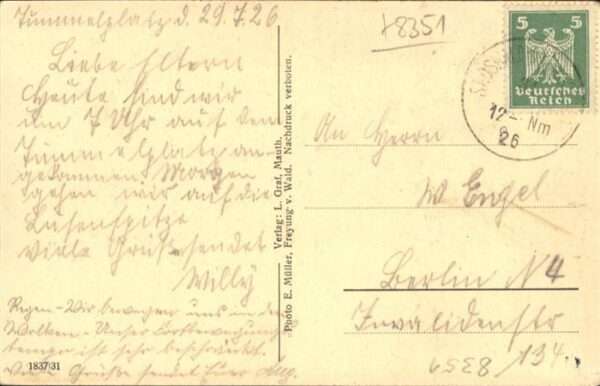 Tummelplatz d. 29.7.26
Liebe Eltern
Heute sind wir
um 7 Uhr auf dem
Tummelplatz an-
gekommen Morgen
gehen wir auf die
Lusenspitze
Viele Grüße sendet
Willy
Regen - Wir bewegen uns in den
Wolken - Unser Fortbewegungs
tempo ist sehr beschränkt.
Viele Grüße sendet Euer Aug.
1837/31
Verlag: L. Graf, Mauth.
Photo E. Müller, Freyung v. Wald. Nachdruck verboten.
78351
5 5
Deutsches
Reich
12- Nm
26
An Herrn
W Engel
Berlin N 4
Invalidenstr
134.